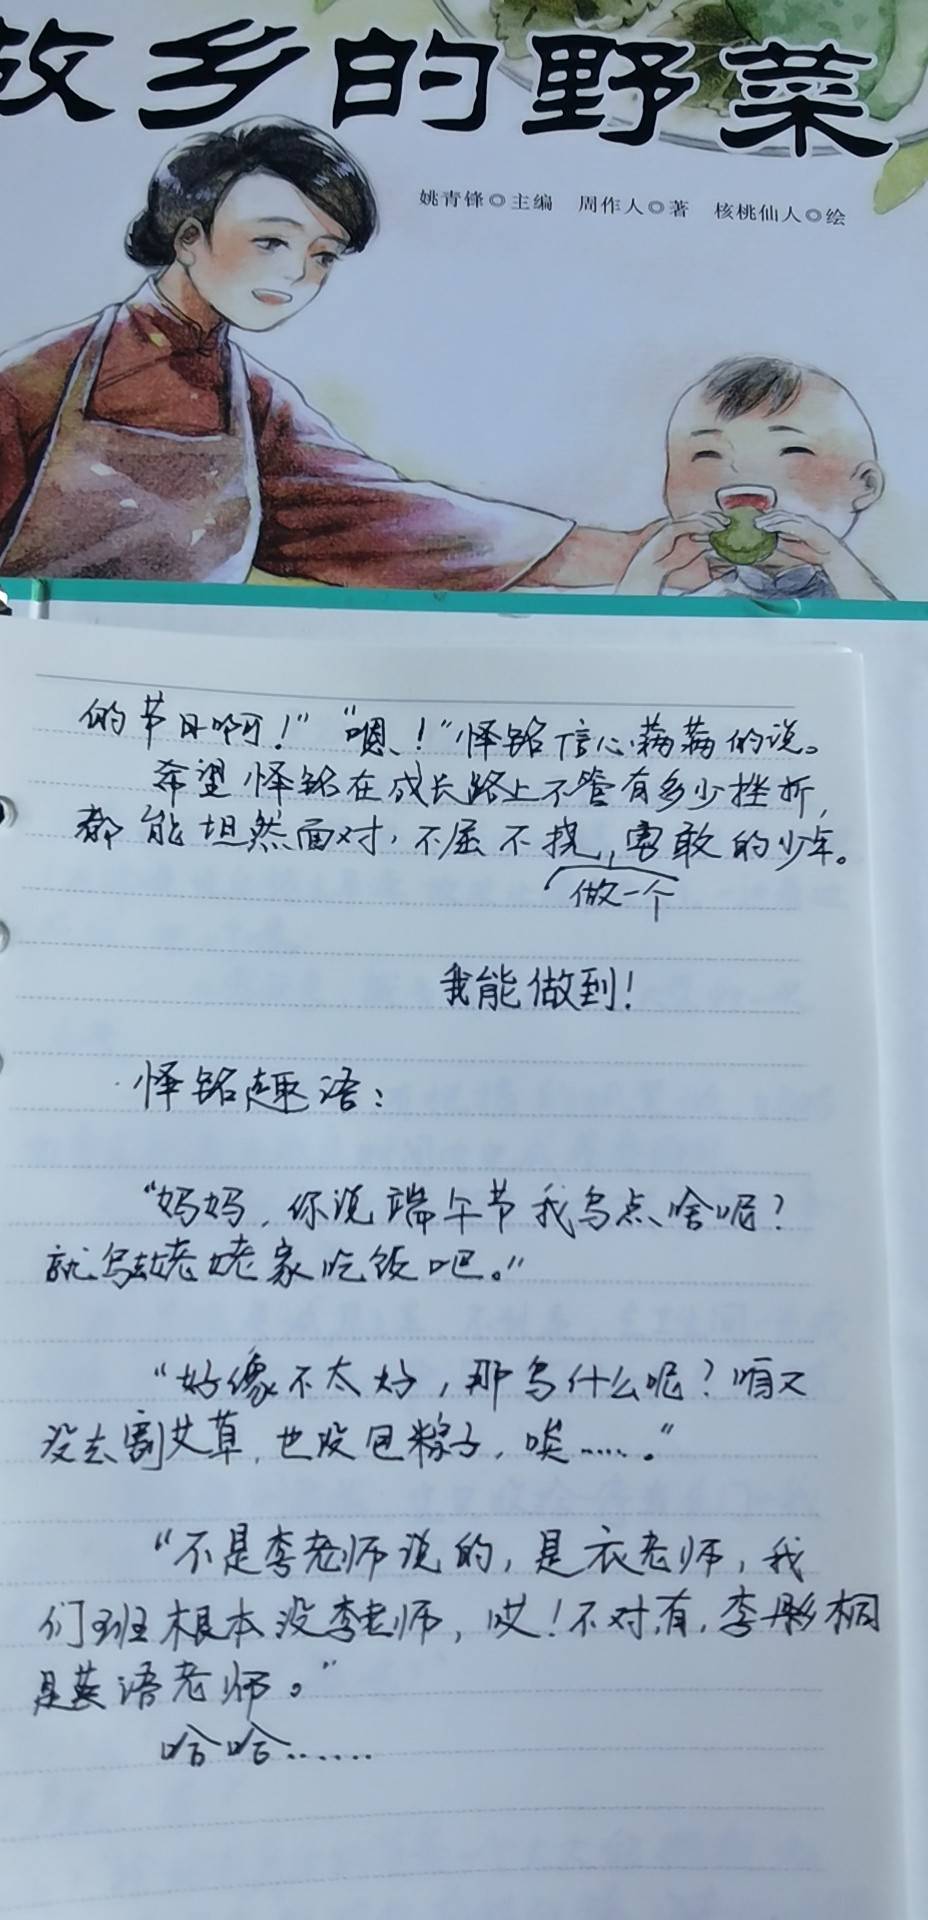 故乡的野菜
姚青锋◎主编 周作人◎著 核桃仙人◎绘
的节日啊！”“嗯！”怿铭信心满满的说。
希望怿铭在成长路上不管有多少挫折，
都能坦然面对，不屈不挠，勇敢的少年。
做一个
我能做到！
怿铭趣语：
“妈妈，你说端午节我写点啥呢？
就写去姥姥家吃饭吧。”
“好像不太好，那写什么呢？咱又
没去割艾草，也没包粽子，唉……。”
“不是李老师说的，是衣老师，我
们班根本没李老师，哎！不对，有，李彤桐
是英语老师。”
哈哈……